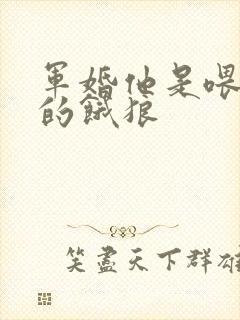 軍婚他是喂
的餓狼
笑盡天下群雄